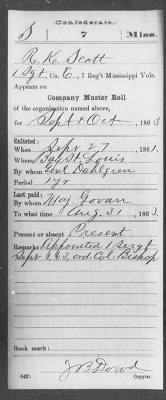 (Confederate.)
S 7 Miss.
R. K. Scott
1 Sgt, Co. C, 7 Reg't Mississippi Vols.
Appears on
Company Muster Roll
of the organization named above,
for Sept & Oct, 1863
Enlisted:
When Sept 27, 1861.
Where Bay St. Louis
By whom Genl Dahlgren
Period 1 yr
Last paid:
By whom Maj Govan
To what time Aug 31, 1863
Present or absent Present
Remarks: Appointed 1 Sergt
Sept 1, 63, ord. Col. Bishop
Book mark:
J B Dowd
(642) Copyist.